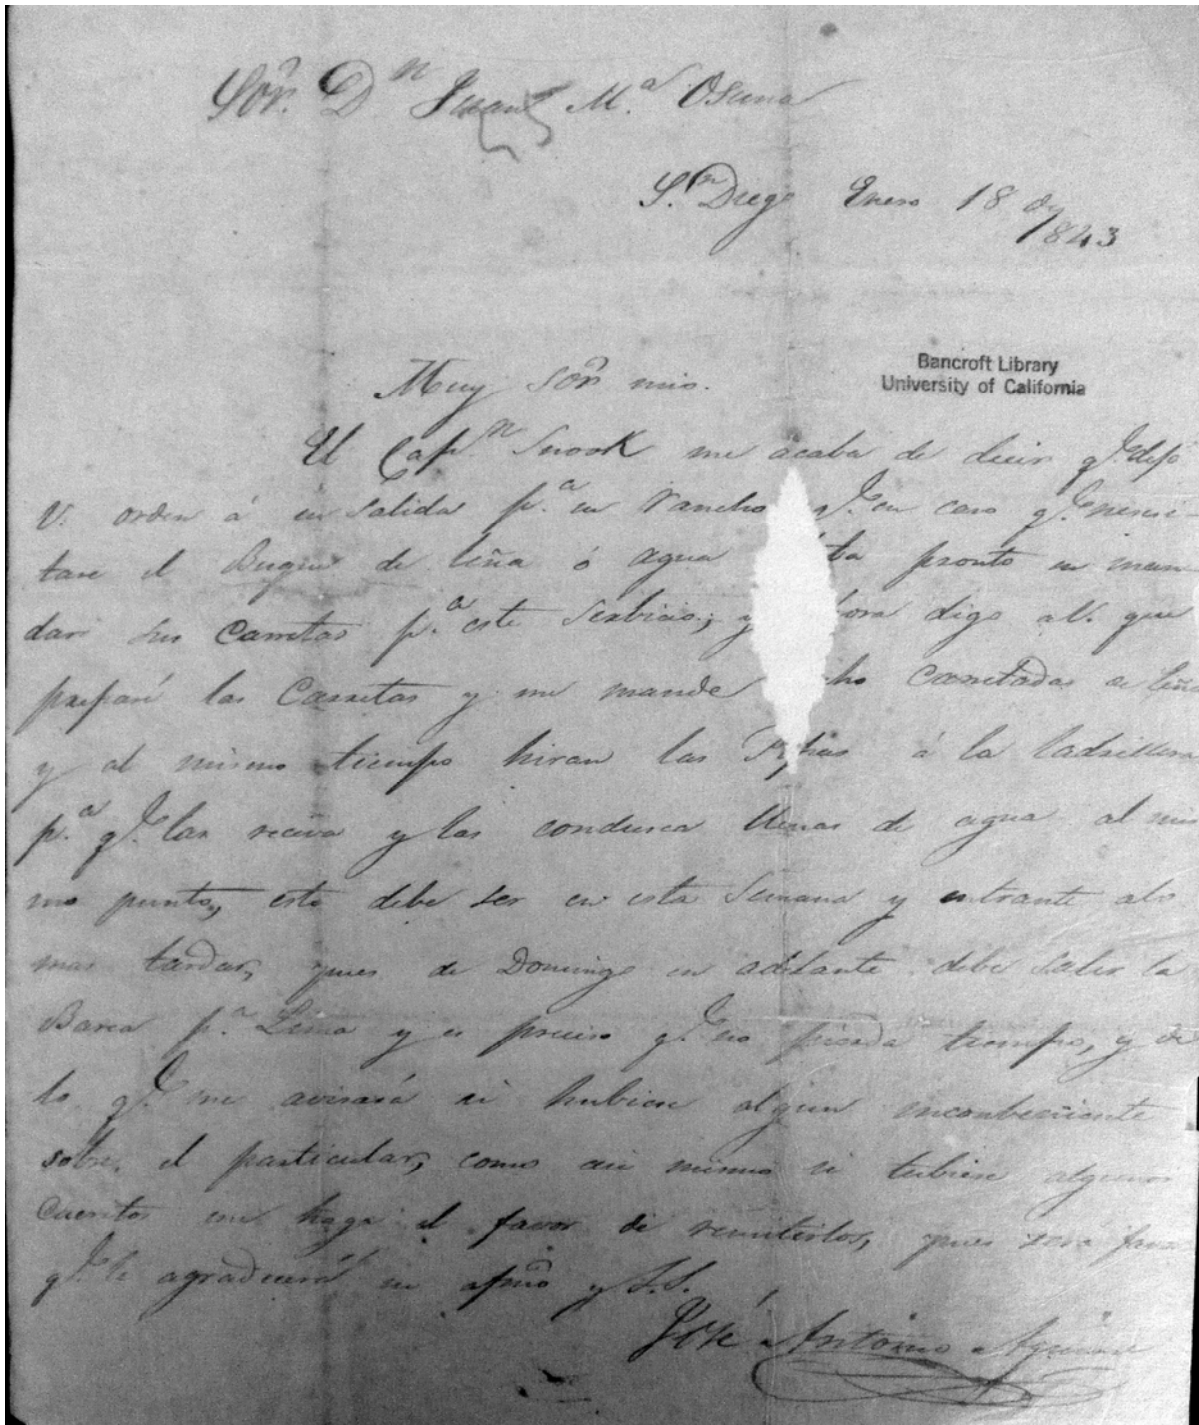 Sōr. Dn Juan M.a Osuna
S.n Diego Enero 18 de
1843
Bancroft Library
University of California
Muy Sōr mio.
El Cap.n Snook me acaba de decir q.e dejó
V. orden á su salida p.a su rancho q.e en caso q.e necesi-
tase el Buque de leña ó agua ta pronto en man
dar sus Carretas p.a este serbicio; y ora digo á V. que
preparé las Carretas y me mande cho carretadas de leña
y al mismo tiempo hiran las Pipas á la ladrillera
p.a q.e las reciva y las condusca llenas de agua al mis
mo punto, esto debe ser en esta Semana y entrante alo
mas tardar, pues de Domingo en adelante debe salir la
Barca p.a Lima y es preciso q.e no pierda tiempo, y de
lo q.e me avisará si hubiese algun inconbeniente
sobre el particular, como asi mismo si tubiese algunos
Cueritos me haga el favor de remitirlos, pues sera favor
q.e le agradecerá su afmō y S.S.
José Antonio Aguirre